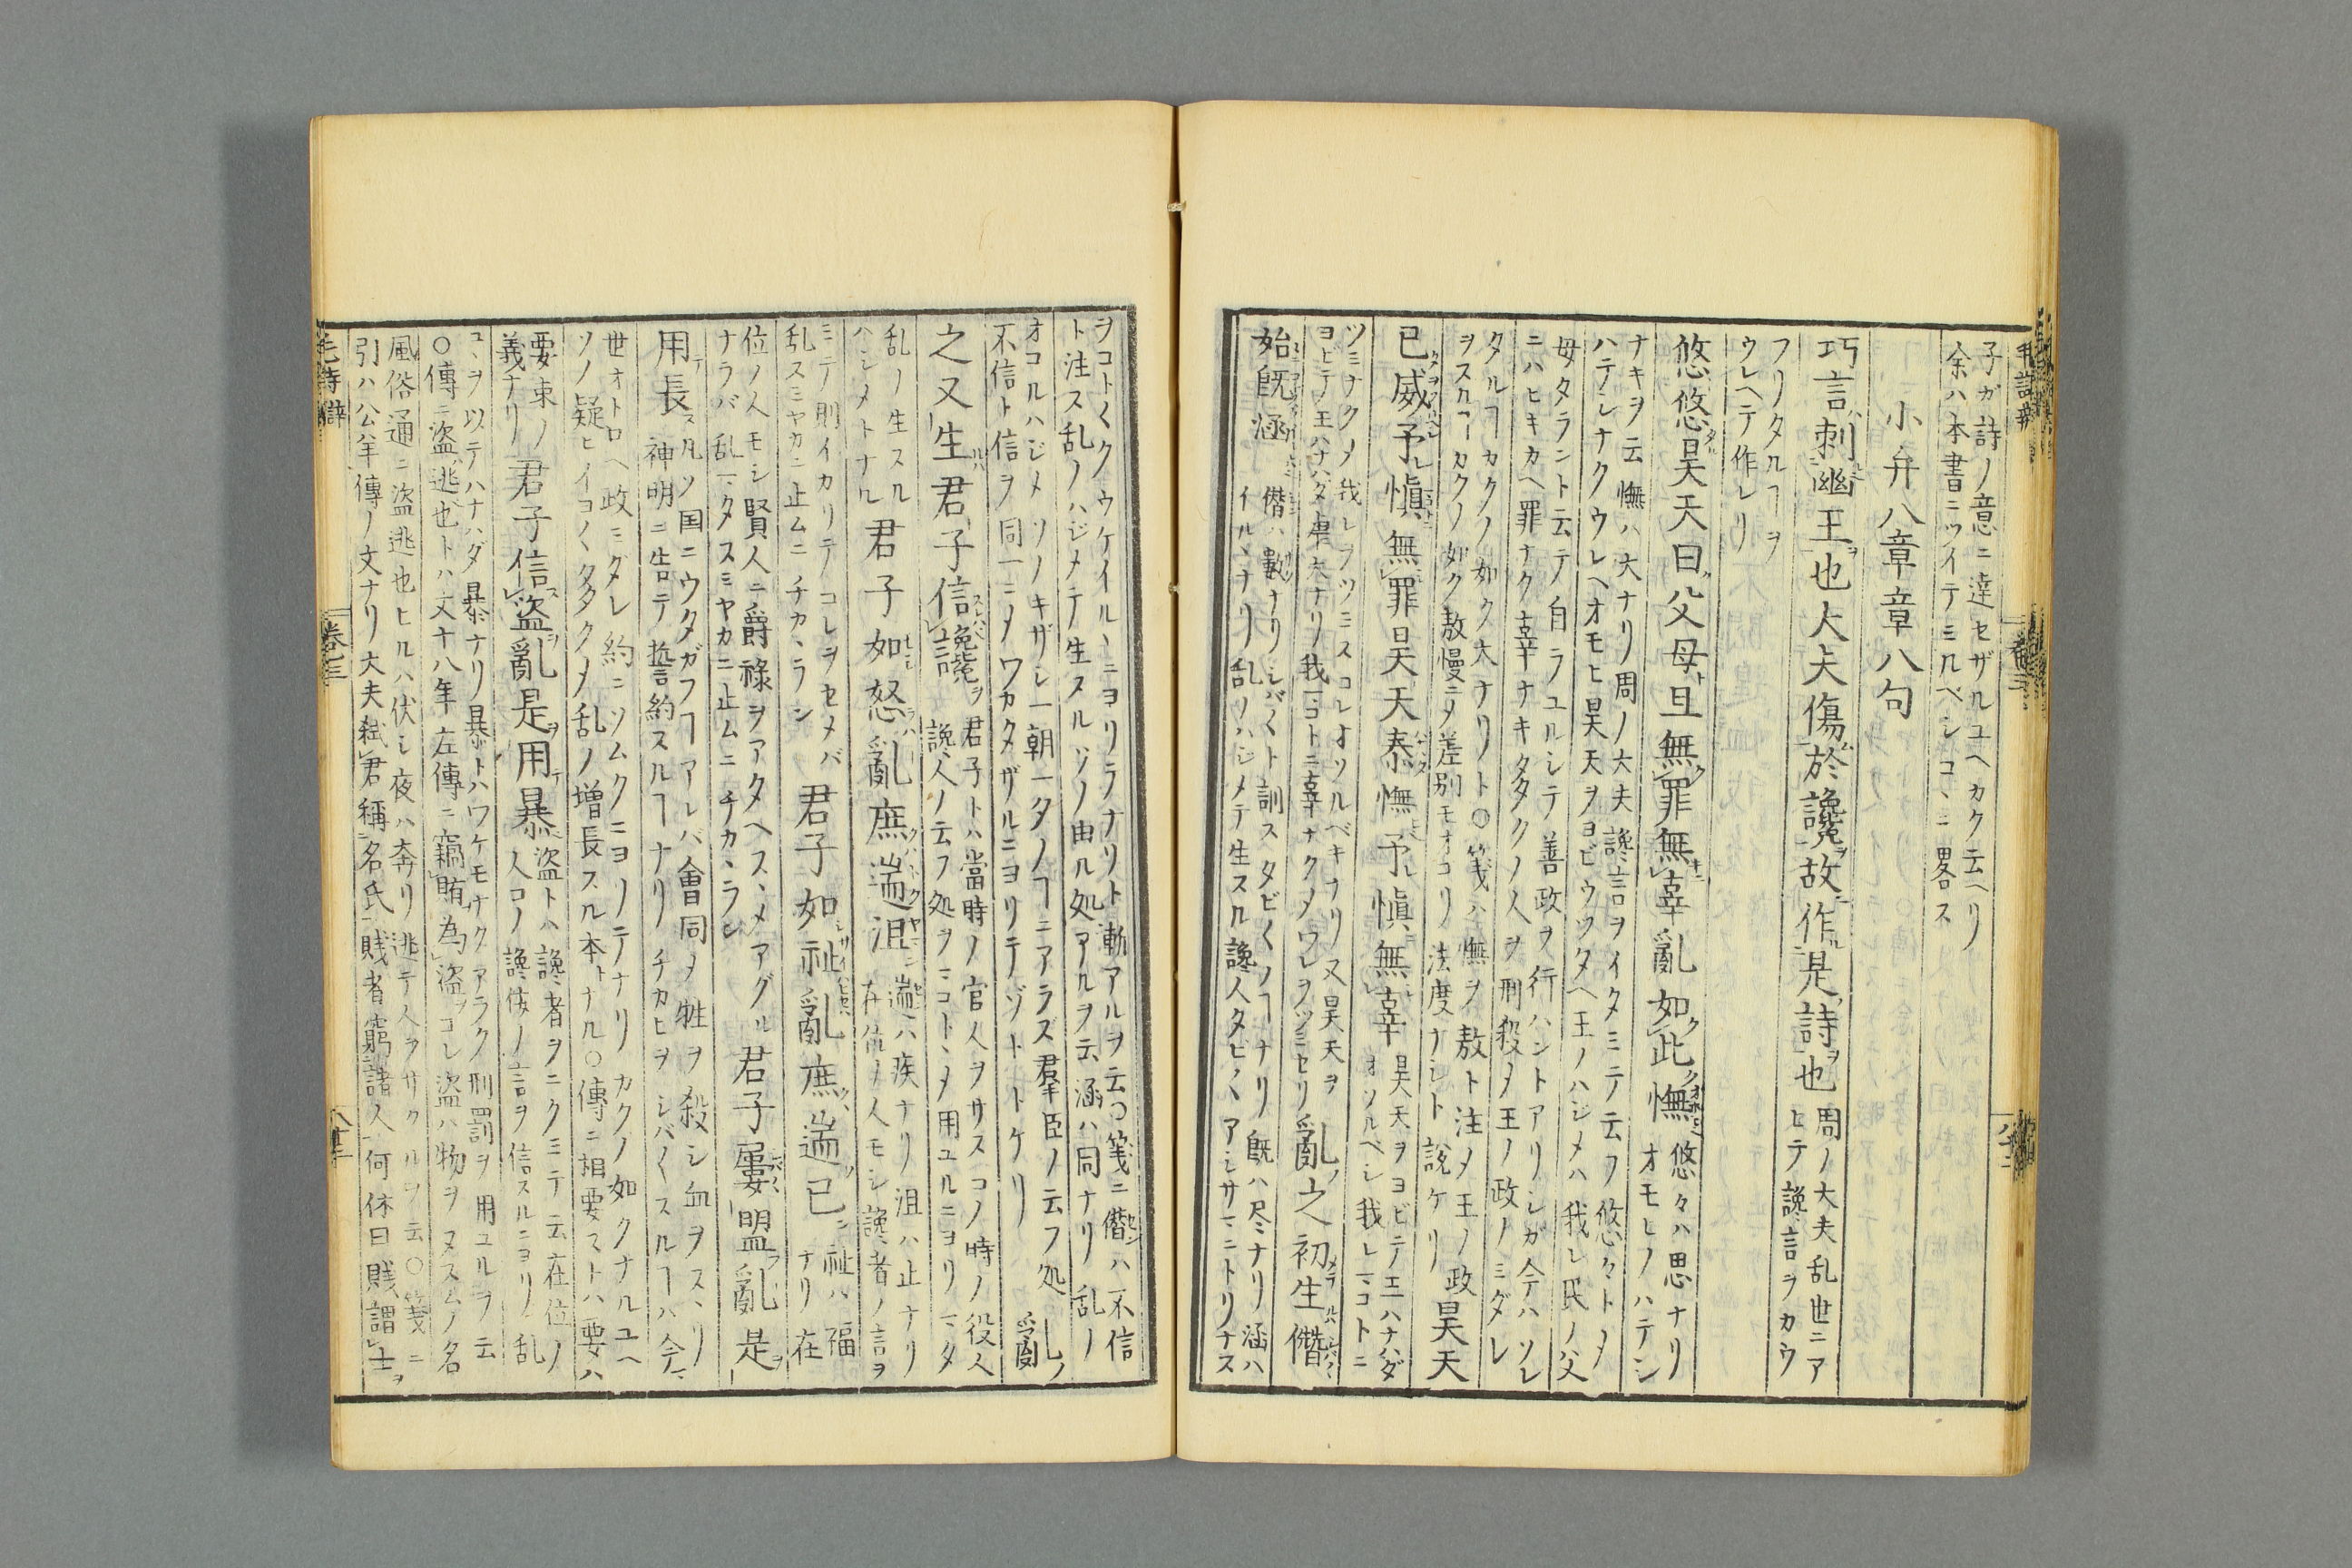 子ガ詩ノ意ニ達セザルユヘカク云ヘリ
余ハ本書ニツイテミルベシコヽニ畧ス
小弁八章章八句
巧言刺幽王也大夫傷於讒故作是詩也
周ノ大夫乱世ニア
ヒテ讒言ヲカウ
フリタルヿヲ
ウレヘテ作レリ
悠悠昊天曰父母且無罪無辜亂如此憮
悠々ハ思ナリ
オモヒノハテシ
ナキヲ云憮ハ大ナリ周ノ大夫讒言ヲイタミテ云フ悠々トメ
ハテシナクウレヘオモヒ昊天ヲヨビウツタヘ王ノハシメハ我レ民ノ父
母タラント云テ自ラユルシテ善政ヲ行ハントアリシガ今ハソレ
ニハヒキカヘ罪ナク辜ナキ多クノ人ヲ刑殺メ王ノ政ノミダレ
タルヿカクノ如ク大ナリト〇箋ハ憮ヲ敖ト注メ王ノ政
ヲスルヿカクノ如ク敖慢ニメ差別モナコリ法度ナシト説ケリ
昊天
已威予愼無罪昊天泰憮予愼無辜
昊天ヲヨビテ王ハナハダ
オソルベシ我レマコトニ
ツミナクメ我レヲツミスコレオソルベキナリ又昊天ヲ
ヨビテ王ハナハダ虐大ナリ我マコトニ辜ナクメワレヲツミセリ
亂之初生僭
始旣涵
僭ハ數ナリシバ〱ト訓スタビ〱ノヿナリ旣ハ尽ナリ涵ハ
イルヽナリ乱ノハシメテ生スル讒人タビ〱アシサマニトリナス
ヲコト〱クウケイルヽニヨリラナリト漸アルヲ云〇箋ニ僭ハ不信
ト注ス乱ノハジメテ生スルソノ由ル処アルヲ云涵ハ同ナリ乱ノ
オコルハジメソノキザシ一朝一夕ノヿニアラズ羣臣ノ云フ処
不信ト信ヲ同一ニメワカタザルニヨリテゾトトケリ
亂
之又生君子信讒
君子トハ當時ノ官人ヲサスコノ時ノ役人
讒人ノ云フ処ヲマコトヽメ用ユルニヨリマタ
乱ノ生スル
ハシメトナル
君子如怒亂庶遄沮
遄ハ疾ナリ沮ハ止ナリ
在位ノ人モシ讒者ノ言ヲ
ミテ則イカリテコレヲセメバ
乱スミヤカニ止ムニチカヽラン
君子如祉亂庶遄已
祉ハ福
ナリ在
位ノ人モシ賢人ニ爵祿ヲアタヘスヽメアグル
ナラバ乱マタスミヤカニ止ムニチカヽラン
君子屢盟亂是
用長
凡ソ国ニウタガフヿアレバ會同メ牲ヲ殺シ血ヲスヽリ
神明ニ告テ誓約スルヿナリチカヒヲシバ〱スルヿハ今マ
世オトロヘ政ミダレ約ニソムクニヨリテナリカクノ如クナルユヘ
ソノ疑ヒイヨ〱多クメ乱ノ増長スル本トナル〇傳ニ相要ストハ要ハ
要束ノ
義ナリ
君子信盜亂是用暴
盜トハ讒者ヲニクミテ云在位ノ
人コノ讒佞ノ言ヲ信スルニヨリ乱
コヽヲ以テハナハダ暴ナリ暴トハワケモナクアラク刑罰ヲ用ユルヲ云
〇傳ニ盜逃也トハ文十八年左傳ニ竊賄為盜コレ盜ハ物ヲヌスムノ名
風俗通ニ盜逃也ヒルハ伏シ夜ハ奔リ逃テ人ヲサクルヲ云〇箋ニ
引ハ公羊傳ノ文ナリ大夫弑君稱名氏賎者窮諸人何休曰賎謂士
毛詩辯
卷三
八十三